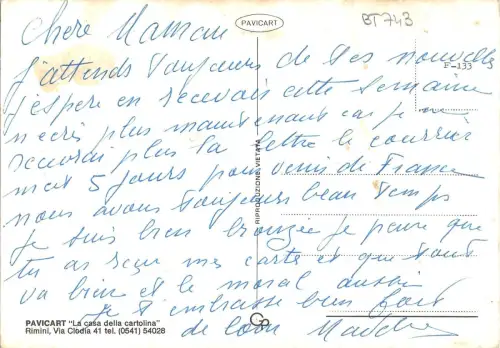 PAVICART
BT 743
E-133
Chere Maman
J'attends toujours de tes nouvelles
j'espere en recevais cette semaine
n'ecris plus maintenant car je ne
recevrai plus la lettre le courrier
met 5 jours pour venir de France
nous avons toujours beau temps
je suis bien bronzée je pense que
tu as reçue mes carte et que tout
va bien et le moral aussi
je t'embrasse bien fort
de loin
RIPRODUZIONE VIETATA
PAVICART "La casa della cartolina"
Rimini, Via Clodia 41 tel. (0541) 54028